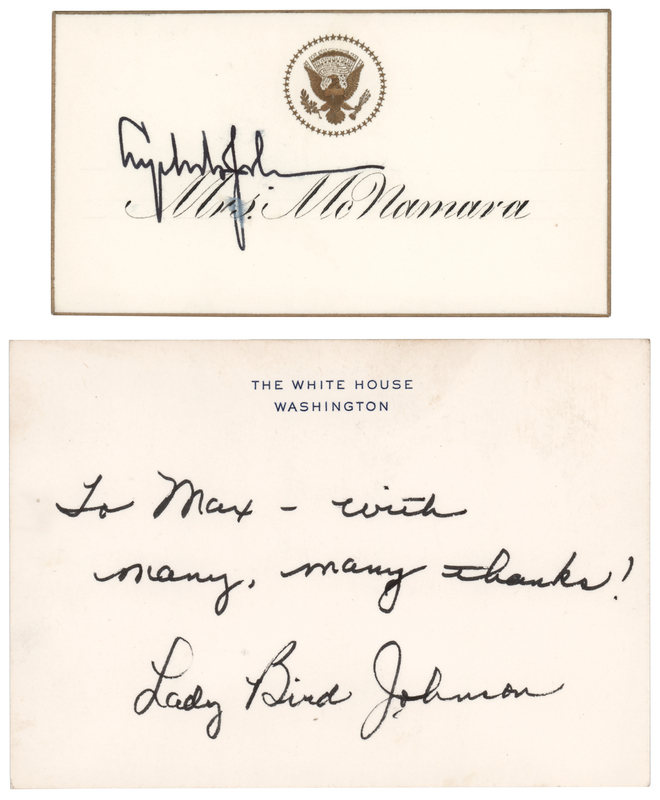 Lyndon B. Johnson
Mrs. McNamara
THE WHITE HOUSE
WASHINGTON
To Max – with
many, many thanks!
Lady Bird Johnson